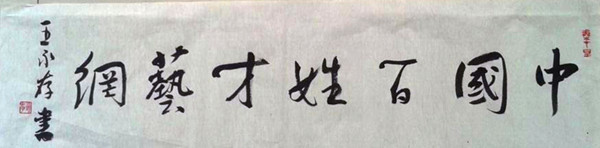 中國百姓才藝網
王永存書